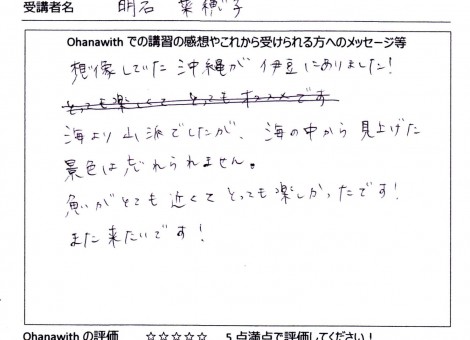 受講者名 明石 菜穂子
Ohanawith での講習の感想やこれから受けられる方へのメッセージ等
想像していた沖縄が伊豆にありました!
とっても楽しくて とってもオススメです
海より山派でしたが、海の中から見上げた
景色は忘れられません。
魚がとても近くてとっても楽しかったです!
また来たいです!
Ohanawith の評価 ☆☆☆☆☆ 5点満点で評価してください!